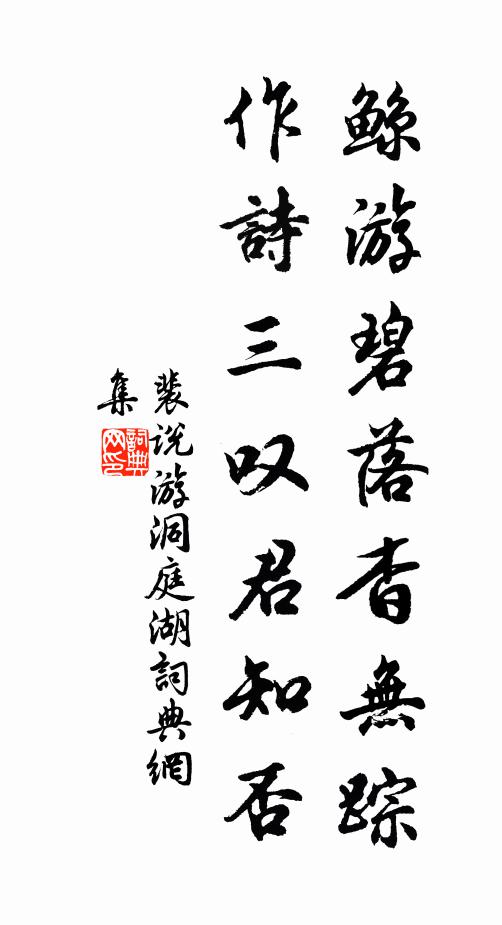 鲸游碧落杳無踪
作詩三叹君知否
裴说游洞庭湖詞典網
集
詞典网印